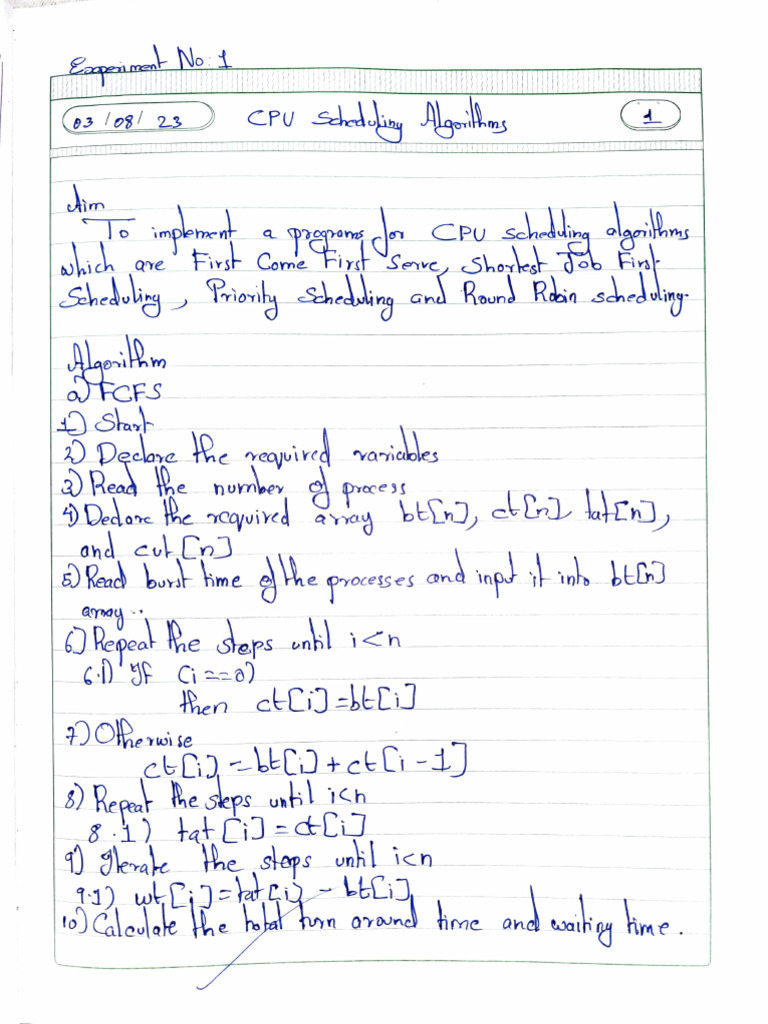 Experiment No: 1
03/08/23 CPU Scheduling Algorithms 1
Aim
To implement a programs for CPU scheduling algorithms
which are First Come First Serve, Shortest Job First
Scheduling, Priority Scheduling and Round Robin scheduling.
Algorithm
a) FCFS
1) Start
2) Declare the required variables
3) Read the number of process
4) Declare the required array bt[n], ct[n] tat[n],
and cut[n]
5) Read burst time of the processes and input it into bt[n]
array..
6) Repeat the steps until i<n
6.1) If (i==0)
then ct[i]=bt[i]
7) Otherwise
ct[i]=bt[i]+ct[i-1]
8) Repeat the steps until i<n
8.1) tat[i]=ct[i]
9) Iterate the steps until i<n
9.1) wt[i]=tat[i]-bt[i]
10) Calculate the total turn around time and waiting time.